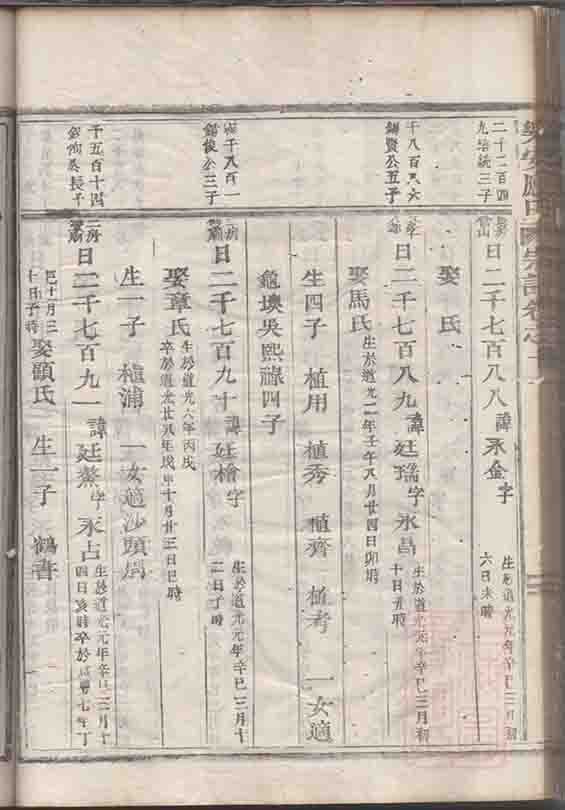 二千二百四
九培統三子
日二千七百八八 諱永金字
生於道光元年辛巳三月初
六日未時
娶 氏
千八百八六
錫賢公五子
日二千七百八九 諱廷瑞字永昌
生於道光元年辛巳三月初
十日丑時
娶馬氏 生於道光二年壬午八月廿四日卯時
生四子 植用 植秀 植齊 植考 一女適
龜墺吳熙祿四子
千八百一
錫俊公三子
二房
日二千七百九十 諱廷檜字
生於道光元年辛巳三月十
二日子時
娶章氏 生於道光六年丙戌
卒於道光廿八年戊申十月廿三日巳時
生一子 植浦 一女適沙頭周
千五百十四
長子
二房
日二千七百九一 諱廷 字永占
生於道光元年辛巳三月十
四日亥時卒於咸豐七年丁
巳十月三
十日子時 娶顧氏 生一子 鶴書